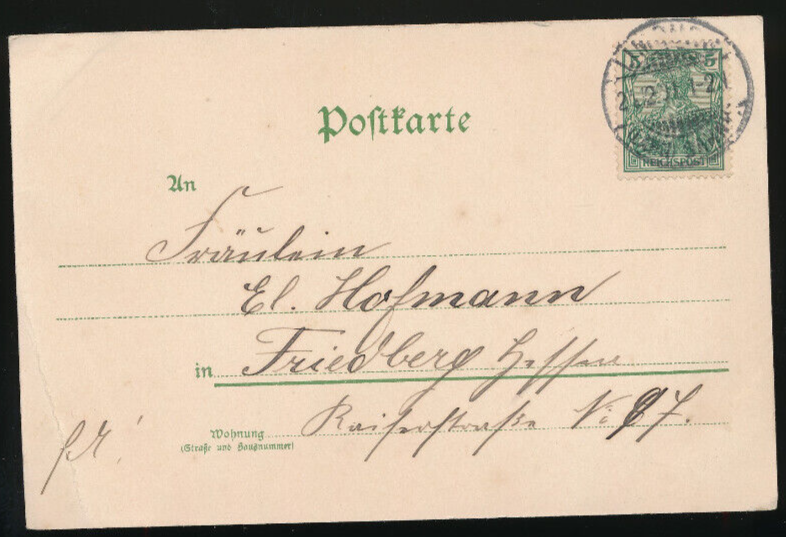 5
1-2
REICHSPOST
Postkarte
An
Fräulein
El. Hofmann
in Friedberg Hessen
Wohnung
(Straße und Hausnummer)
Kaiserstraße No 67.